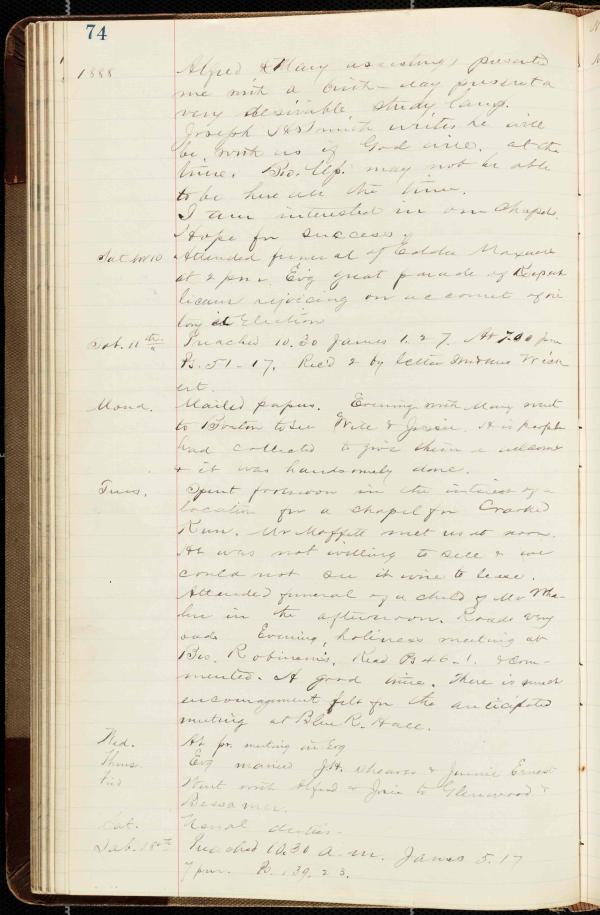 74
1888 Alfred & Mary assisting, presented
me with a birth-day present a
very desirable study lamp.
Joseph H. Smith writes he will
be with us if God will. at the
time. Bro. may not be able
to be here all the time.
I am interested in our chapel.
Hope for success
Sat. Nov 10 Attended funeral of Eddie
at 2 pm. Ev'g great parade of Repub
licans rejoicing on account of vic
tory at Election
Sab. 11th Preached 10.30 James 1. 27. At 7.00 pm
Ps. 51-17. Rec'd 2 by letter
ert.
Mond. Mailed papers. Evening with Mary went
to Boston to see Will & Jessie. His people
had collected to give them a welcome
& it was handsomely done.
Tues. Spent forenoon in the interest of a
location for a chapel for Crooked
Run. Mr Moffett met us at noon.
He was not willing to sell & we
could not see it wise to lease.
Attended funeral of a child of Mr Wha-
len in the afternoon. Roads very
bad. Evening, holiness meeting at
Bro. Robinson's. Read Ps 46-1. & com-
mented. A good time. There is much
encouragement felt for the anticipated
meeting at Blue R. Hall.
Wed. At pr. meeting in Evg
Thurs. Evg married J.H. Sheaver & Jennie Ernest
Frid Went with Alfred & Josie to Glenwood &
Bessamer.
Sat. Usual duties.
Sab. 18th Preached 10.30 a.m. James 5.17
7 pm. Ps. 139. 23.